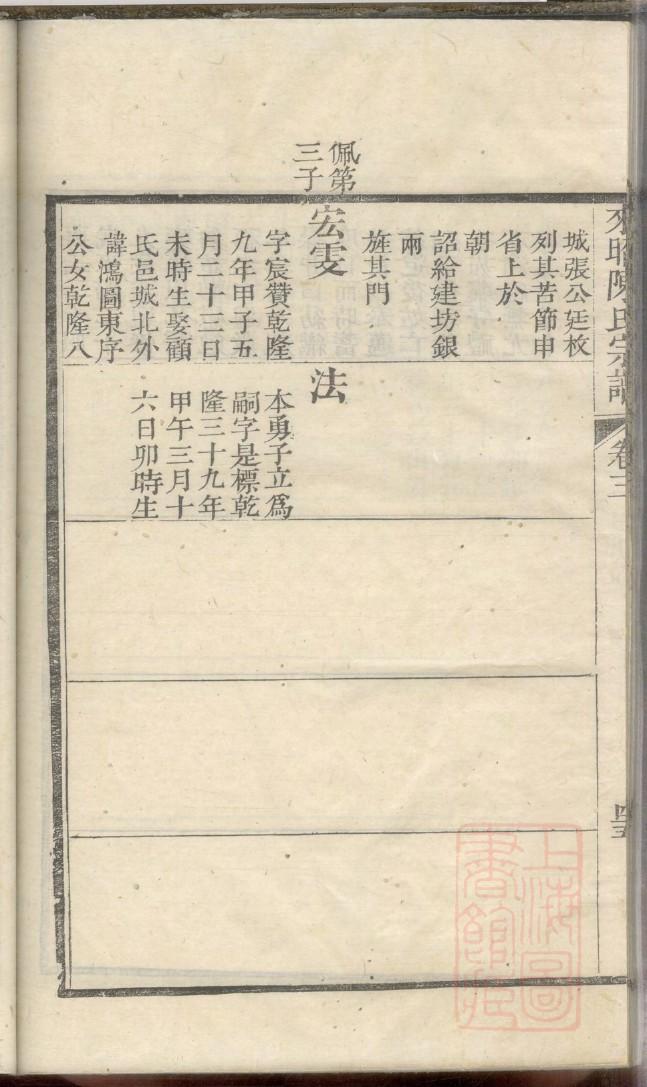 陳氏宗譜
卷三
四五
城張公廷枚
列其苦節申
省上於
朝
詔給建坊銀
兩
旌其門
佩第
三子
宏雯
字宸贊乾隆
九年甲子五
月二十三日
未時生娶顧
氏邑城北外
諱鴻圖東序
公女乾隆八
法
本勇子立爲
嗣字是標乾
隆三十九年
甲午三月十
六日卯時生
上海圖
書館藏